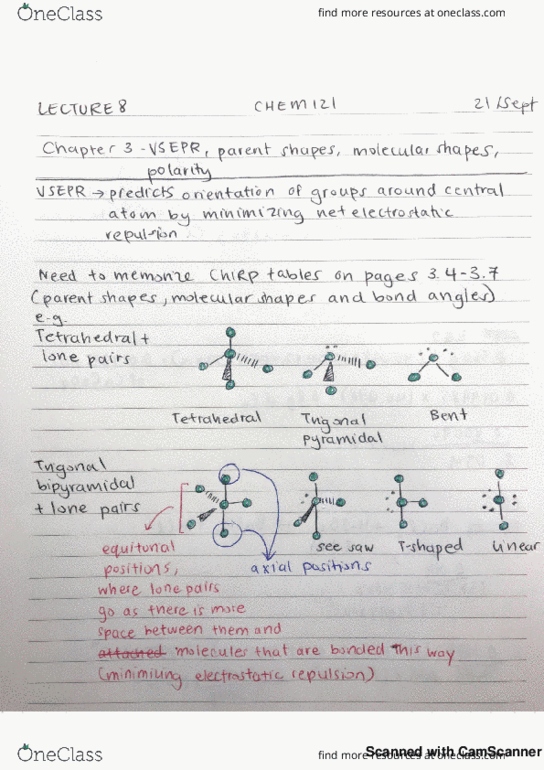 OneClass
find more resources at oneclass.com
LECTURE 8 CHEM 121 21/Sept
Chapter 3 - VSEPR, parent shapes, molecular shapes,
polarity
VSEPR → predicts orientation of groups around central
atom by minimizing net electrostatic
repulsion
Need to memorize ChIRP tables on pages 3.4-3.7
(parent shapes, molecular shapes and bond angles)
e.g.
Tetrahedral +
lone pairs
Tetrahedral Trigonal Bent
pyramidal
Trigonal
bipyramidal
+ lone pairs
see saw T-shaped linear
equitorial axial positions
positions,
where lone pairs
go as there is more
space between them and
attached molecules that are bonded this way
(minimizing electrostatic repulsion)
OneClass
find more resources at oneclass.com
Scanned with CamScanner